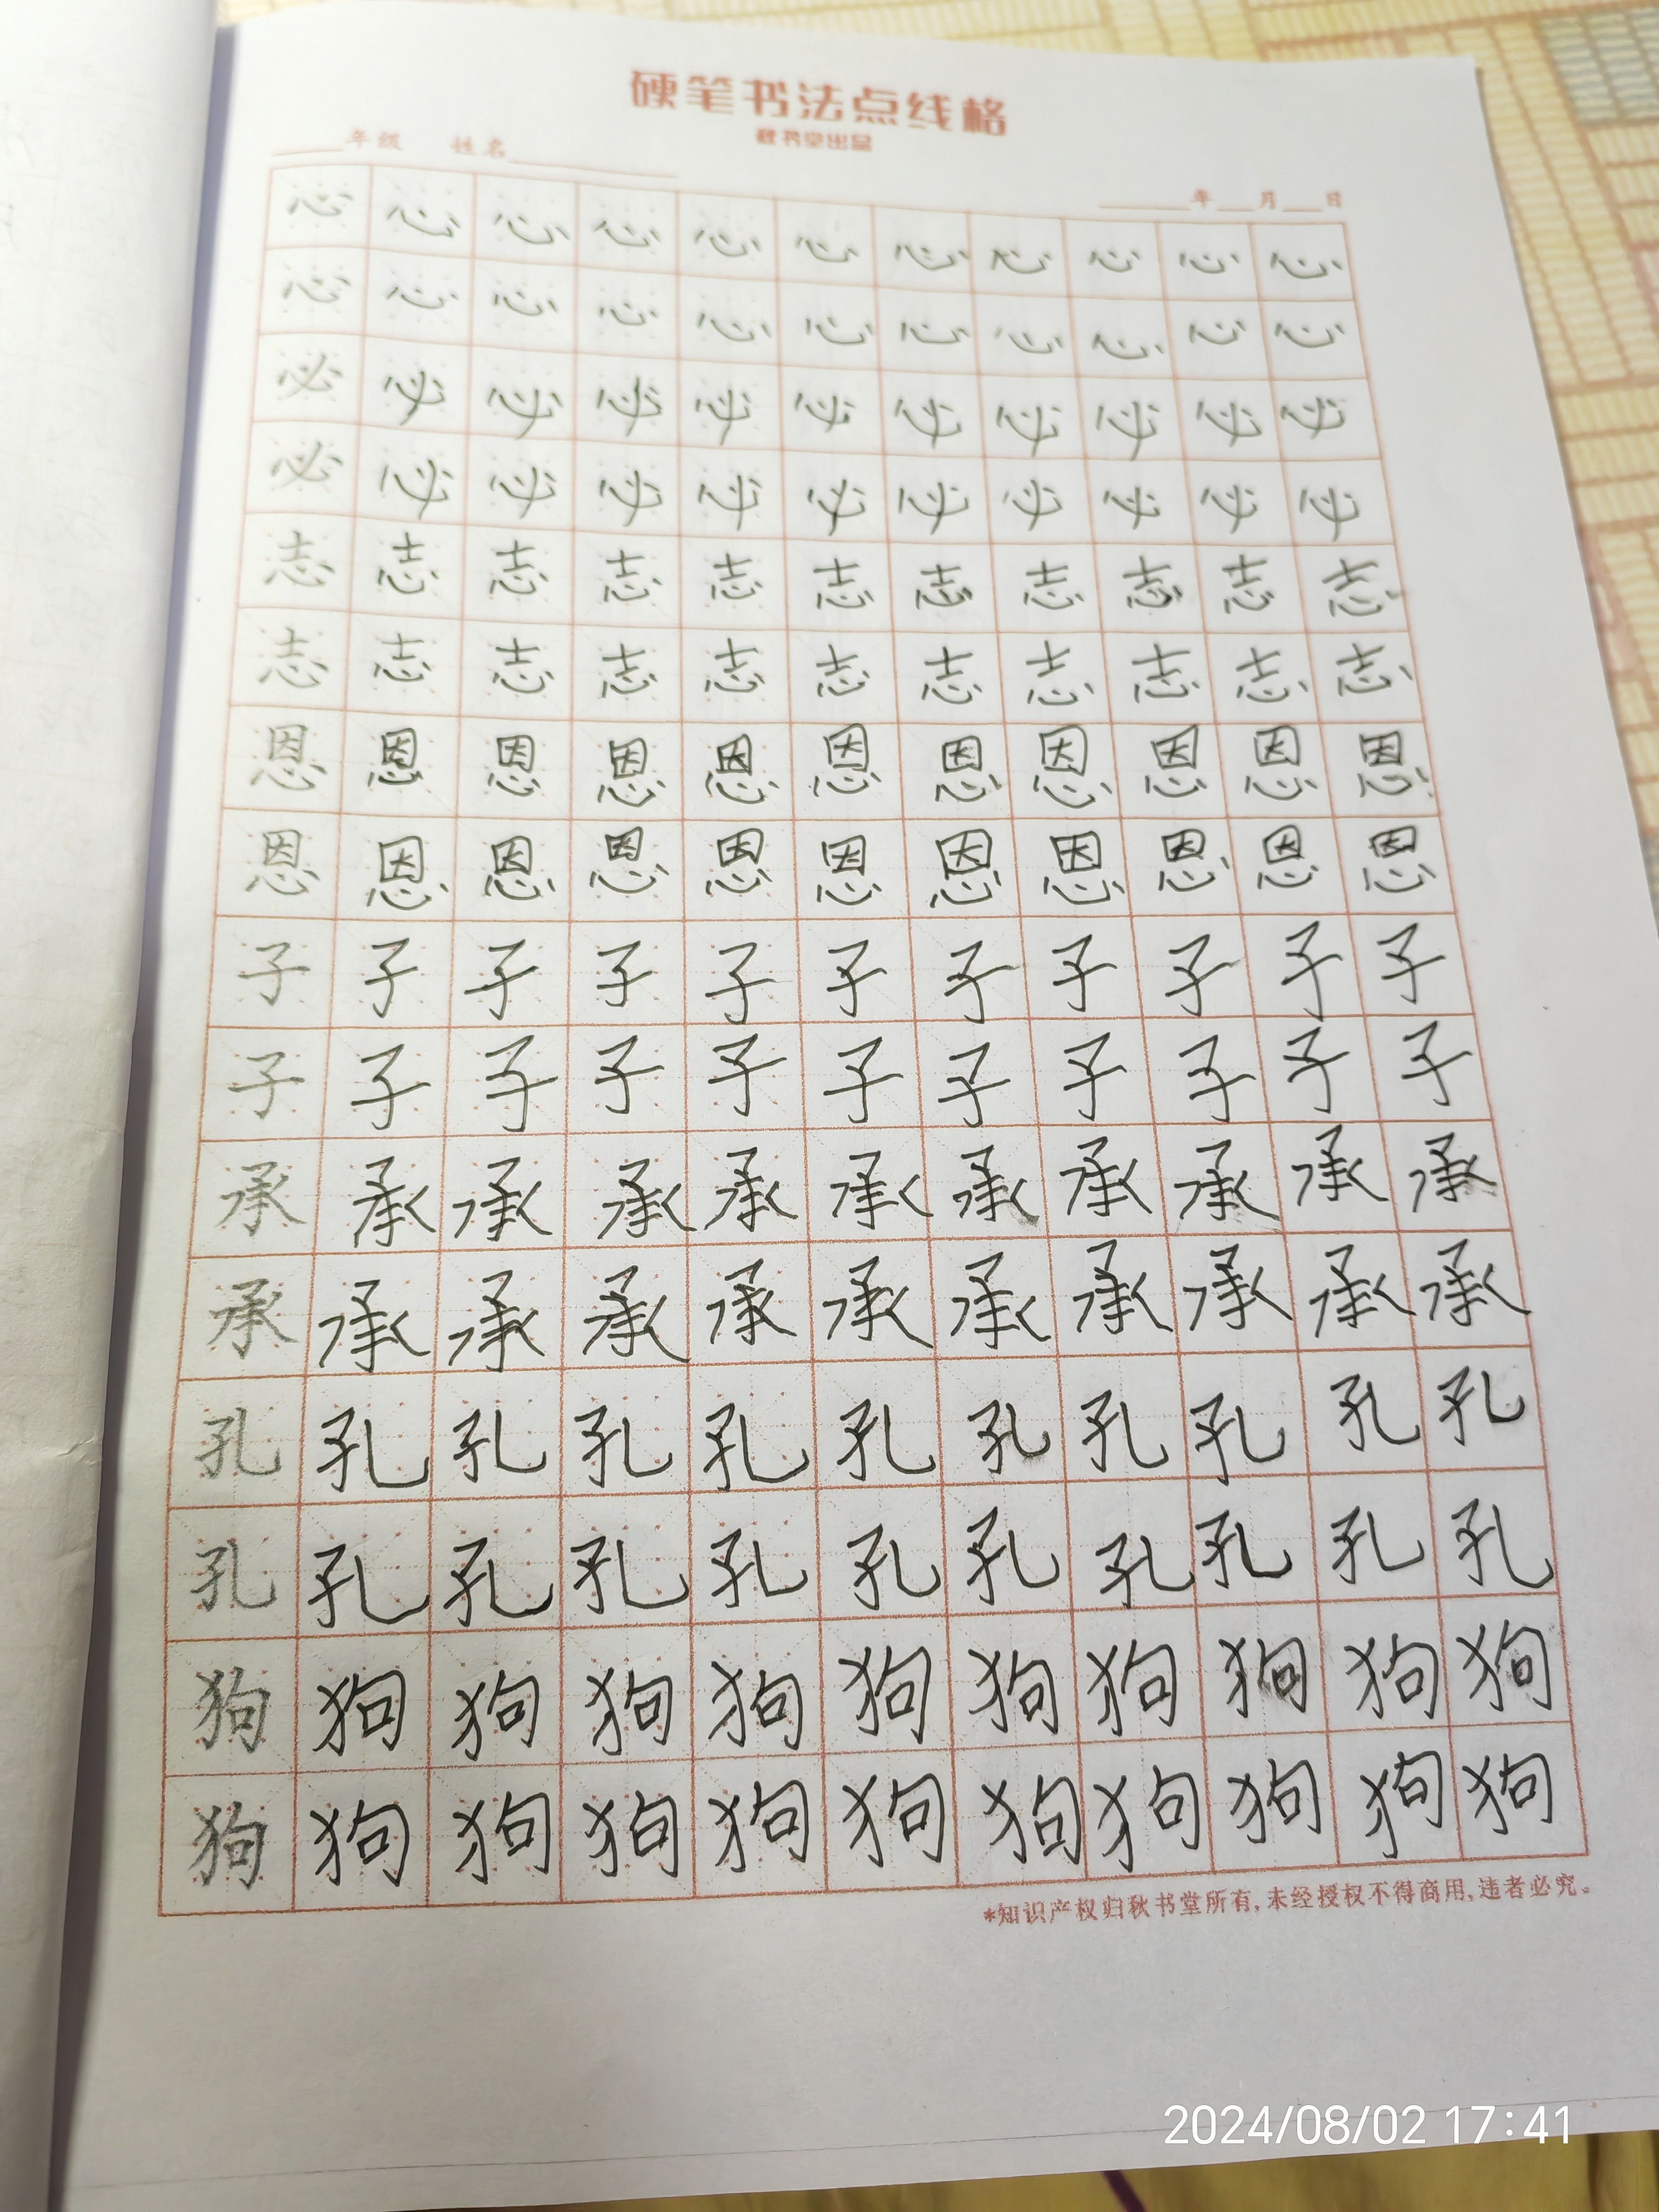 硬笔书法点线格
秋书堂出品
年级 姓名
年 月 日
心 心 心 心 心 心 心 心 心 心 心
心 心 心 心 心 心 心 心 心 心 心
必 必 必 必 必 必 必 必 必 必 必
必 必 必 必 必 必 必 必 必 必 必
志 志 志 志 志 志 志 志 志 志 志
志 志 志 志 志 志 志 志 志 志 志
恩 恩 恩 恩 恩 恩 恩 恩 恩 恩 恩
恩 恩 恩 恩 恩 恩 恩 恩 恩 恩 恩
子 子 子 子 子 子 子 子 子 子 子
子 子 子 子 子 子 子 子 子 子 子
承 承 承 承 承 承 承 承 承 承 承
承 承 承 承 承 承 承 承 承 承 承
孔 孔 孔 孔 孔 孔 孔 孔 孔 孔 孔
孔 孔 孔 孔 孔 孔 孔 孔 孔 孔 孔
狗 狗 狗 狗 狗 狗 狗 狗 狗 狗 狗
狗 狗 狗 狗 狗 狗 狗 狗 狗 狗 狗
*知识产权归秋书堂所有,未经授权不得商用,违者必究。
2024/08/02 17:41